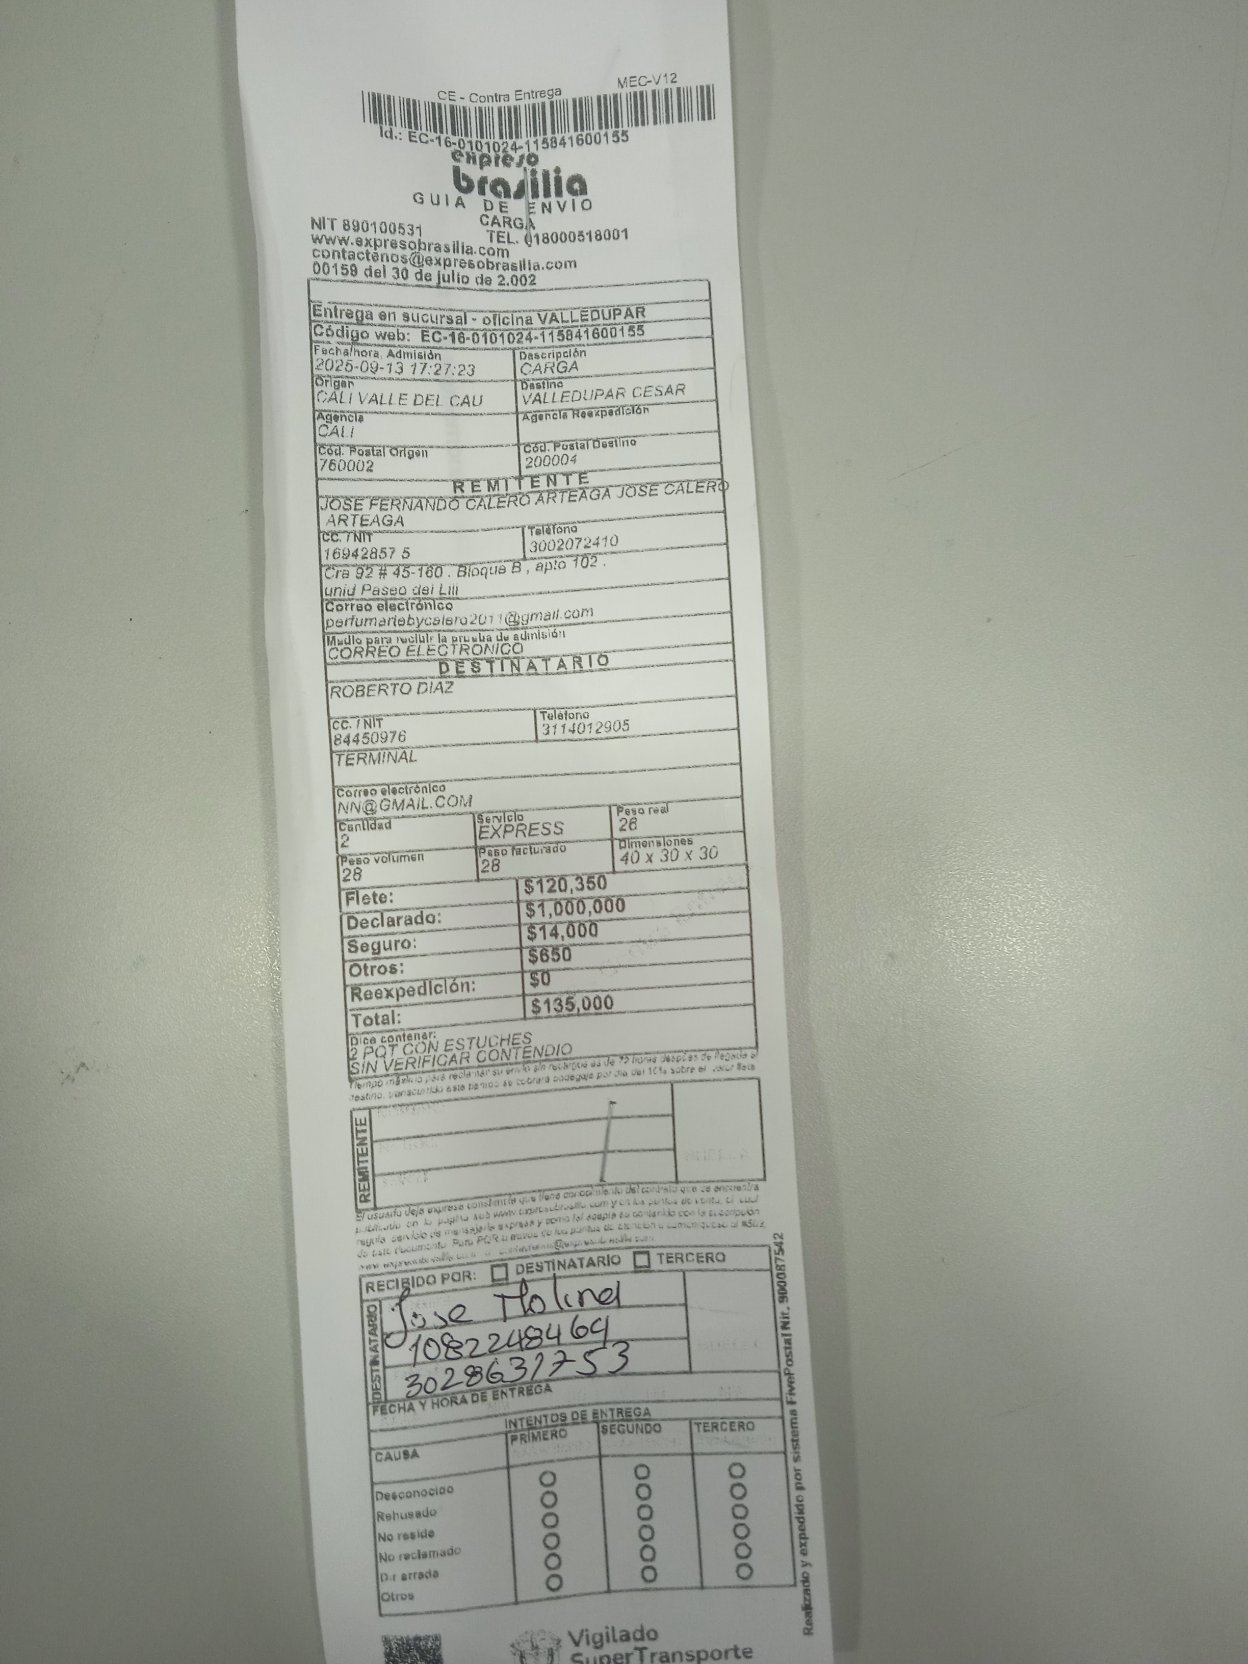 CE - Contra Entrega MEC-V12
Id.: EC-16-0101024-115841600155
expreso
brasilia
GUIA DE ENVIO
CARGA
NIT 890100531 TEL. 018000518001
www.expresobrasilia.com
contactenos@expresobrasilia.com
00159 del 30 de julio de 2.002
Entrega en sucursal - oficina VALLEDUPAR
Código web: EC-16-0101024-115841600155
Fecha/hora, Admisión Descripción
2025-09-13 17:27:23 CARGA
Origen Destino
CALI VALLE DEL CAU VALLEDUPAR CESAR
Agencia Agencia Reexpedición
CALI
Cód. Postal Origen Cód. Postal Destino
760002 200004
REMITENTE
JOSE FERNANDO CALERO ARTEAGA JOSE CALERO
ARTEAGA
CC. / NIT Teléfono
16942857 5 3002072410
Cra 92 # 45-160 . Bloque B , apto 102 .
unid Paseo del Lili
Correo electrónico
perfumariebycalero2011@gmail.com
Medio para recibir la prueba de admisión
CORREO ELECTRONICO
DESTINATARIO
ROBERTO DIAZ
CC. / NIT Teléfono
84450976 3114012905
TERMINAL
Correo electrónico
NN@GMAIL.COM
Cantidad Servicio Peso real
2 EXPRESS 28
Peso volumen Peso facturado Dimensiones
28 28 40 x 30 x 30
Flete: $120,350
Declarado: $1,000,000
Seguro: $14,000
Otros: $650
Reexpedición: $0
Total: $135,000
Dice contener:
2 PQT CON ESTUCHES
SIN VERIFICAR CONTENDIO
Tiempo máximo para reclamar su envío sin recargue es de 72 horas después de llegada al
destino, transcurrido este tiempo se cobrará bodegaje por día del 10% sobre el valor flete
REMITENTE
El usuario deja expresa constancia que tiene conocimiento del contrato que se encuentra
publicado en la pagina web www.expresobrasilia.com y en los puntos de venta, el cual
regula servicio de mensajería expresa y como tal acepta su contenido con la suscripción
de este documento. Para PQR a través de los puntos de atención o comuníquese al
RECIBIDO POR: DESTINATARIO TERCERO
DESTINATARIO
Jose Molina
1082248464
3028631753
FECHA Y HORA DE ENTREGA
INTENTOS DE ENTREGA
CAUSA PRIMERO SEGUNDO TERCERO
Desconocido
Rehusado
No reside
No reclamado
Dir errada
Otros
Realizado y expedido por sistema FivePostal Nit. 900087542
Vigilado
SuperTransporte